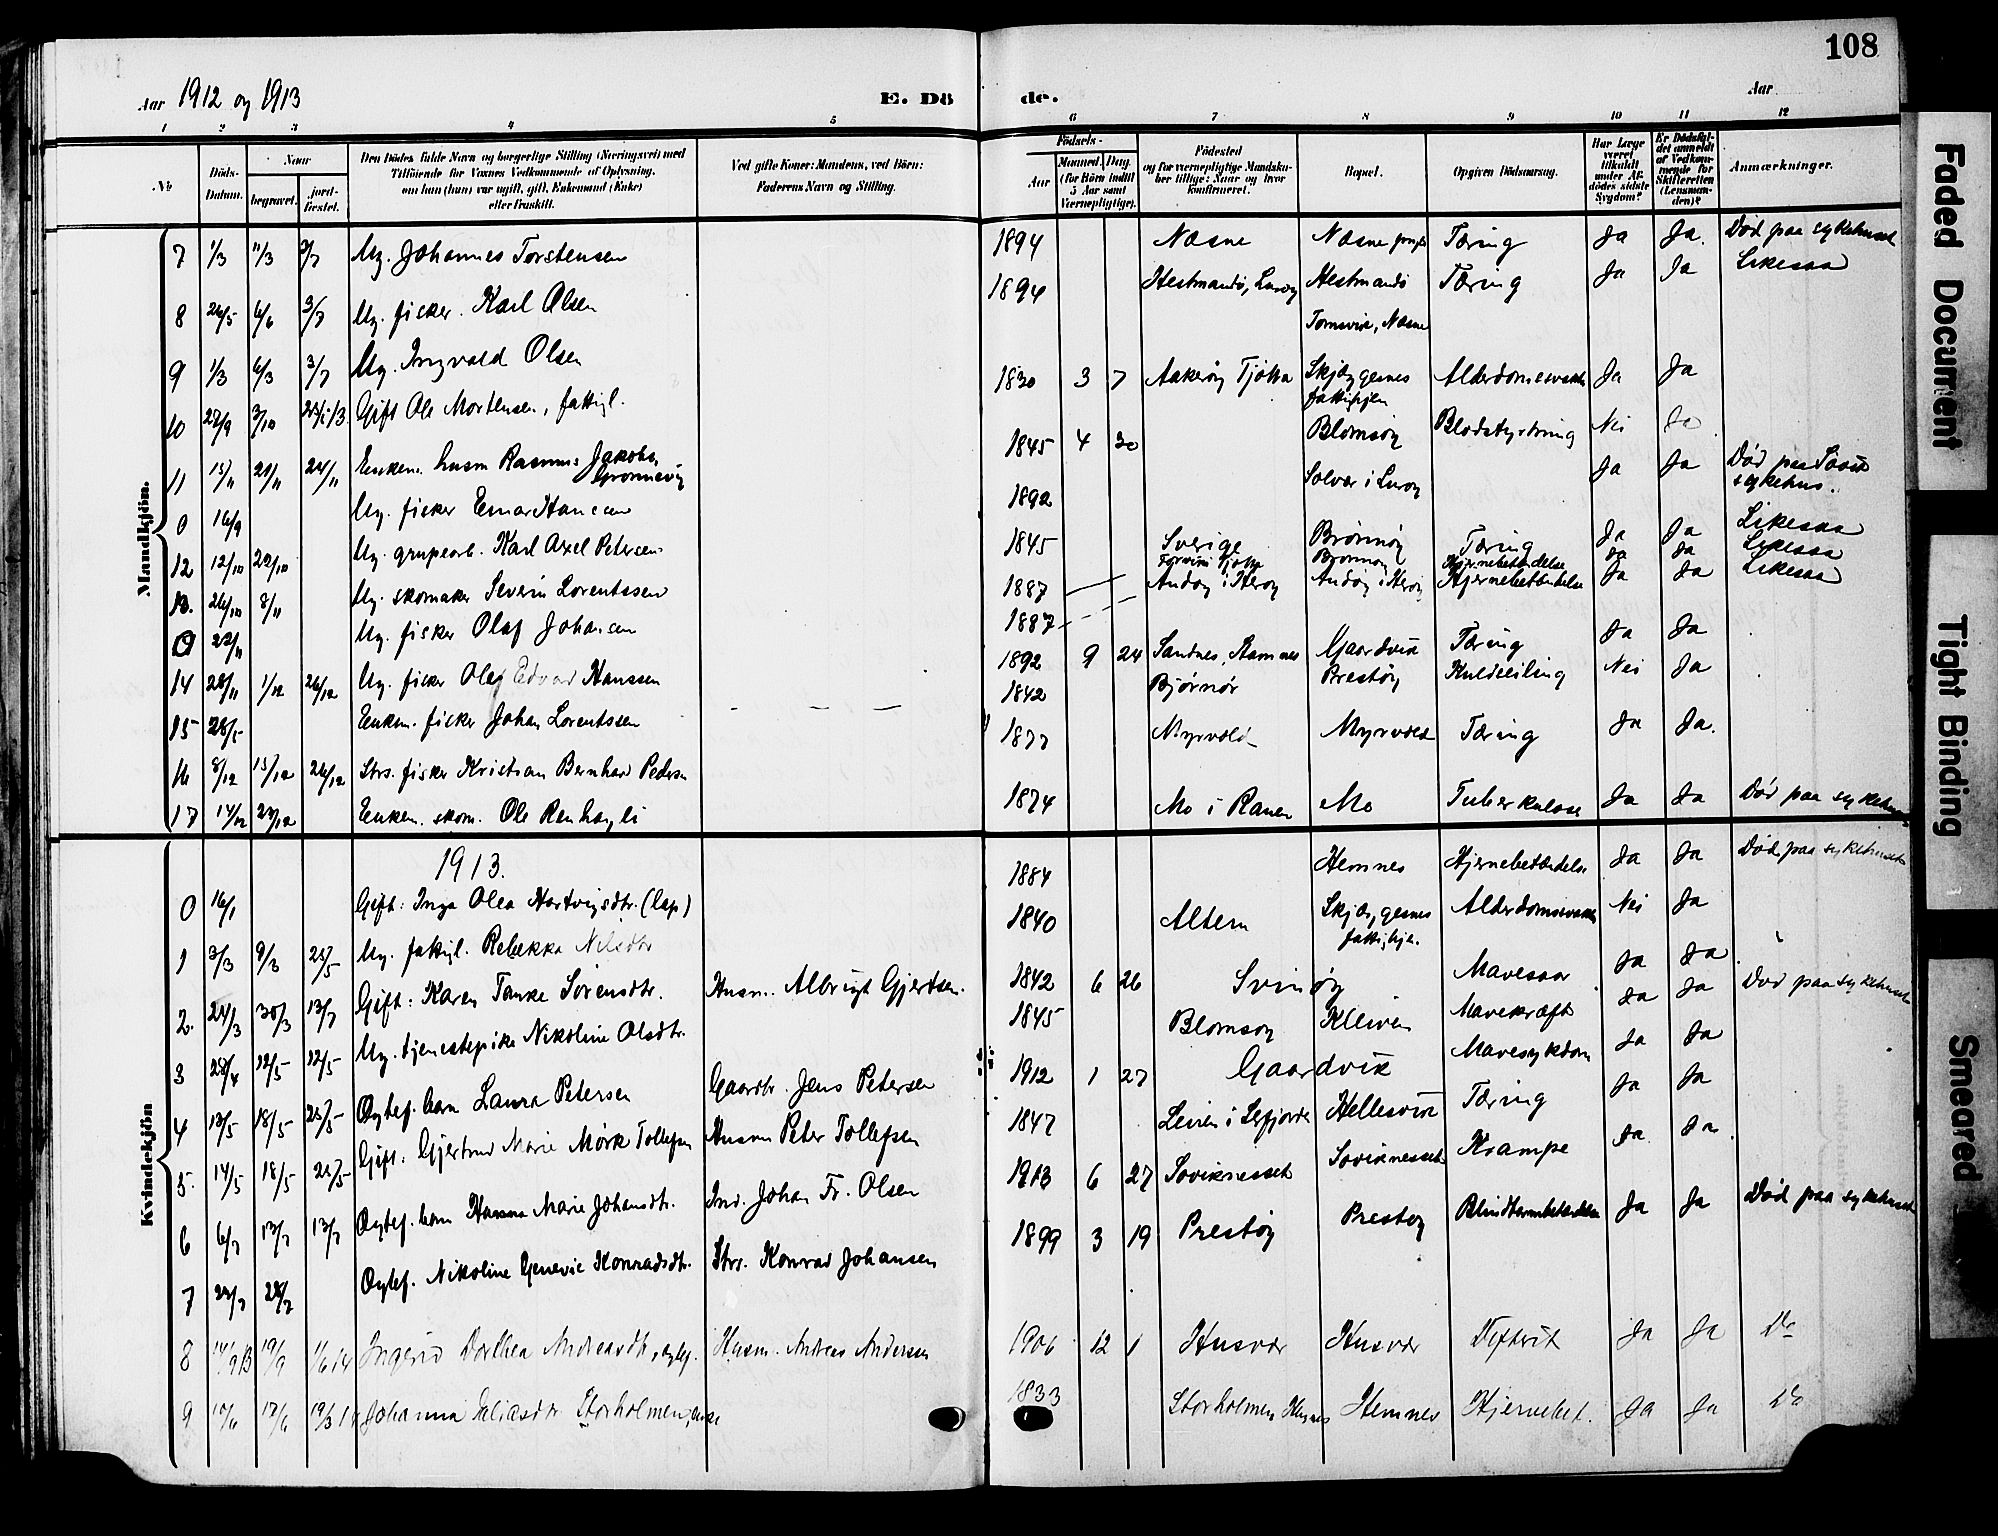 108
Aar 1912 og 1913 E. Dö de. Aar
1 2 3 4 5 6 7 8 9 10 11 12
No Döds-Datum. Naar begravet. jordfæstet. Den Dödes fulde Navn og borgerlige Stilling (Næringsvei) med Tilföiende for Voxnes Vedkommende af Oplysning, om han (hun) var ugift, gift, Enkemand (Enke) eller fraskilt. Ved gifte Koner: Mandens, ved Börn: Faderens Navn og Stilling. Födsels- Aar Maaned. Dag. (for Börn indtil 5 Aar samt Værnepligtige). Födested og for værnepligtige Mandskaber tillige: Naar og hvor konfirmeret. Bopæl. Opgiven Dödsaarsag. Har Læge været tilkaldt under Afdödes sidste Sygdom? Er Dödsfaldet anmeldt af Vedkommende for Skifteretten (Lensmanden)? Anmærkninger.
Mandkjön.
7 1/3 11/3 3/7 Ug. Johannes Torstensen 1894 Næsne Næsne Tæring Ja Ja. Død paa sykehuset
8 26/5 6/6 3/7 Ug. fisker. Karl Olsen 1894 Hestmandö, Lurøy Hestmandö Tæring Ja Ja Likesaa
9 1/3 6/3 3/7 Ug. Ingvald Olsen Tomsvik, Næsne
10 27/9 3/10 Gift Ole Mortensen, fattigl. 1830 3 7 Aakerøy Tjøtta Skjæggesnes fattighjem Alderdomssvakh Ja Ja
11 15/11 21/11 24/11 Enkem. husm Rasmus Jakobs. Grönnevig 1845 4 30 Blomsøy Blodstyrtning Nei Ja
0 16/9 Ug. fisker Einar Hansen 1892 Solvær i Lurøy Ja Ja Død paa sykehus.
12 12/10 22/10 Ug. grupearb. Karl Axel Petersen 1845 Sverige Brønnøy Tæring Ja Ja Likesaa
13. 26/10 8/11 Ug. skomaker Severin Lorentssen 1887 Tjøtta Brønnøy Hjernebetændelse Ja Ja Likesaa
0 22/11 Ug. fisker Olaf Johansen 1887 Andøy i Herøy Andøy i Herøy Hjernebetændelse Ja Ja Likesaa
14 28/11 1/12 26/12 Ug. fisker Oluf Edvard Hanssen 1892 9 24 Sandnes, Gaardvik Tæring Ja Ja
15 28/5 Enkem. fisker Johan Lorentssen 1842 Bjørnør Prestøy Nei Ja
16 8/12 15/12 26/12 Strs. fisker Kristian Bernhard Peders 1877 Myrvold Myrvold Tæring Ja Ja.
17 14/12 23/12 Enkem. skom. Ole Renhagli 1874 Mo i Ranen Mo Tuberkulose Ja Ja Død paa sykehuset
Kvindekjön
1913.
0 16/1 Gift: Inga Olea Hartvigsdtr. (lap) 1884 Hemnes Hjernebetændelse Ja Ja Død paa sykehuset
1 3/3 9/3 25/5 Ug. fattigl. Rebekka Nilsdtr 1840 Altern Skjæggesnes fattighje. Alderdomssvakh Nei Ja
2. 24/3 30/3 13/7 Gift: Karen Tanke Sörensdtr. Husm. Albrigt Gjertsen. 1842 6 26 Svinøy Mavesaar Ja Ja
3 28/4 12/5 12/5 Ug. tjenestepike Nikoline Olsdtr. 1845 Blomsøy Kleiven Mavekræft Ja Ja Død paa sykehuset
4 13/5 18/5 25/5 Egtef. barn Laura Petersen Gaardbr. Jens Petersen 1912 1 27 Gaardvik Mavesykdom Ja Ja
5 14/5 18/5 25/5 Gift: Gjertrud Marie Mörk Tollefsen Husm Peter Tollefsen 1847 Leiren i Lefjorden Hellesvik Tæring Ja Ja
6 6/7 13/7 13/7 Egtef. barn Hanna Marie Johansdtr. Ind. Johan Fr. Olsen 1913 6 27 Søviknesset Søviknesset Krampe Ja Ja
7 22/7 28/7 Egtef. Nikoline Genevie Konradsdtr. Strs. Konrad Johansen 1899 3 19 Prestøy Prestøy Blindtarmbetændelse Ja Ja Død paa sykehuset
8 14/9 13 19/9 1/6 14 Ingerid Dorthea Andreasdtr, egtef. Husm. Andreas Andersen 1906 12 1 Husvær Husvær Difterit Ja Ja Do
9 12/6 17/6 19/3 14 Johanna Eliasdtr Storholmen, enke 1833 Storholmen Hemnes Hemnes Hjernebet. Ja Ja Do
Faded Document
Tight Binding
Smeared